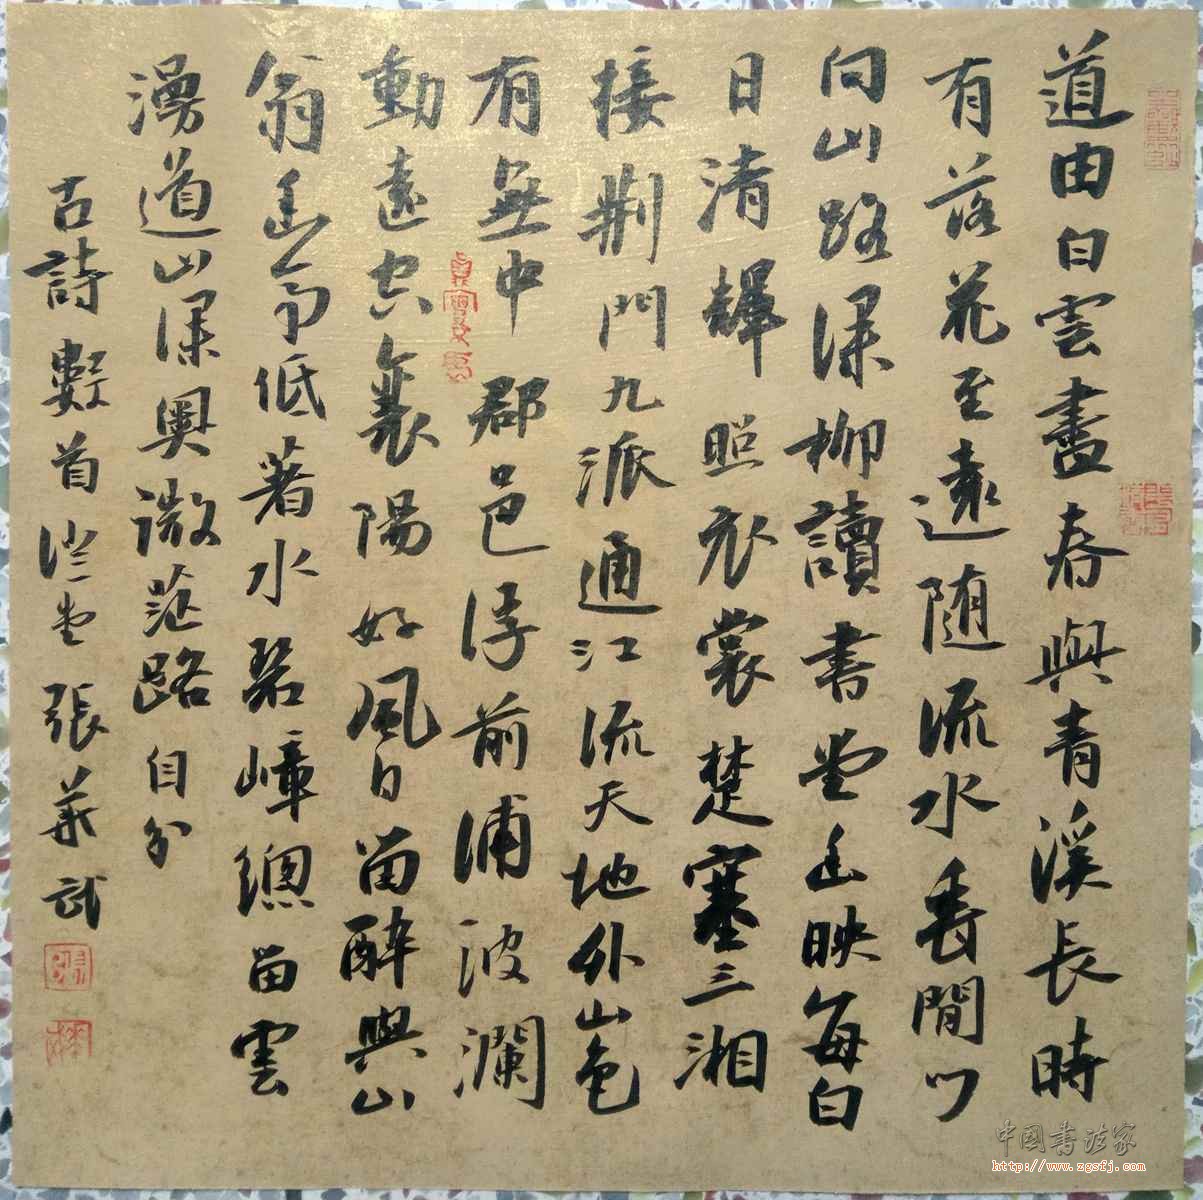 道由白雲盡春與青溪長時
有落花至遠随流水香閒門
向山路深柳讀書堂幽映每白
日清輝照衣裳楚塞三湘
接荆門九派通江流天地外山色
有無中郡邑浮前浦波瀾
動遠空襄陽好風日留醉與山
翁幽低著水碧嶂總留雲
湧道山深奧微茫路自分
古詩數首堂張華武
中國書法家
http://www.zgsfj.com